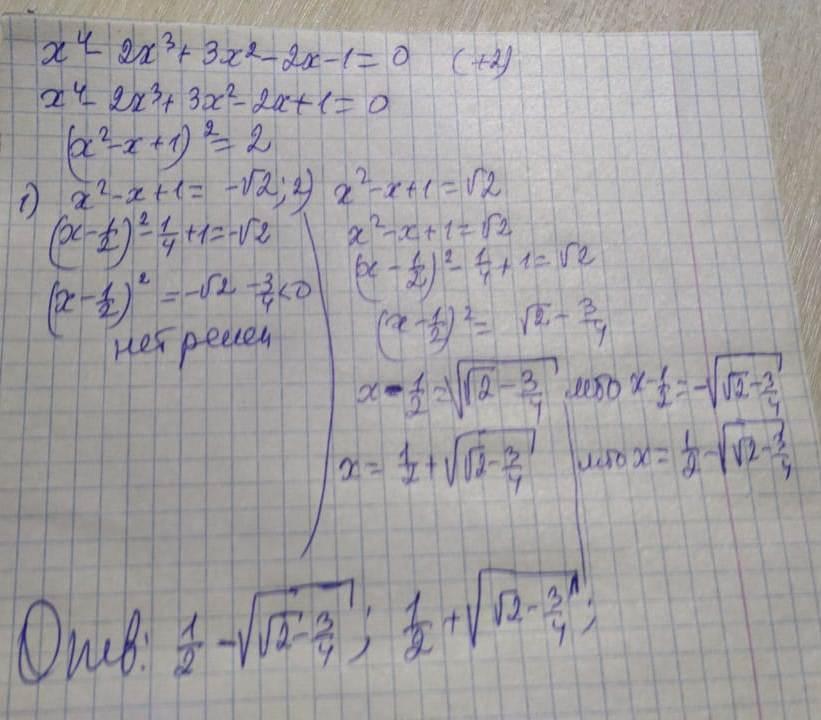 x⁴ - 2x³ + 3x² - 2x - 1 = 0 (+2)
x⁴ - 2x³ + 3x² - 2x + 1 = 0
(x² - x + 1)² = 2
1) x² - x + 1 = -√2; 2) x² - x + 1 = √2
(x - 1/2)² - 1/4 + 1 = -√2
(x - 1/2)² = -√2 - 3/4 < 0
нет решен
x² - x + 1 = √2
(x - 1/2)² - 1/4 + 1 = √2
(x - 1/2)² = √2 - 3/4
x - 1/2 = √(√2 - 3/4) либо x - 1/2 = -√(√2 - 3/4)
x = 1/2 + √(√2 - 3/4) либо x = 1/2 - √(√2 - 3/4)
Ответ: 1/2 - √(√2 - 3/4); 1/2 + √(√2 - 3/4);